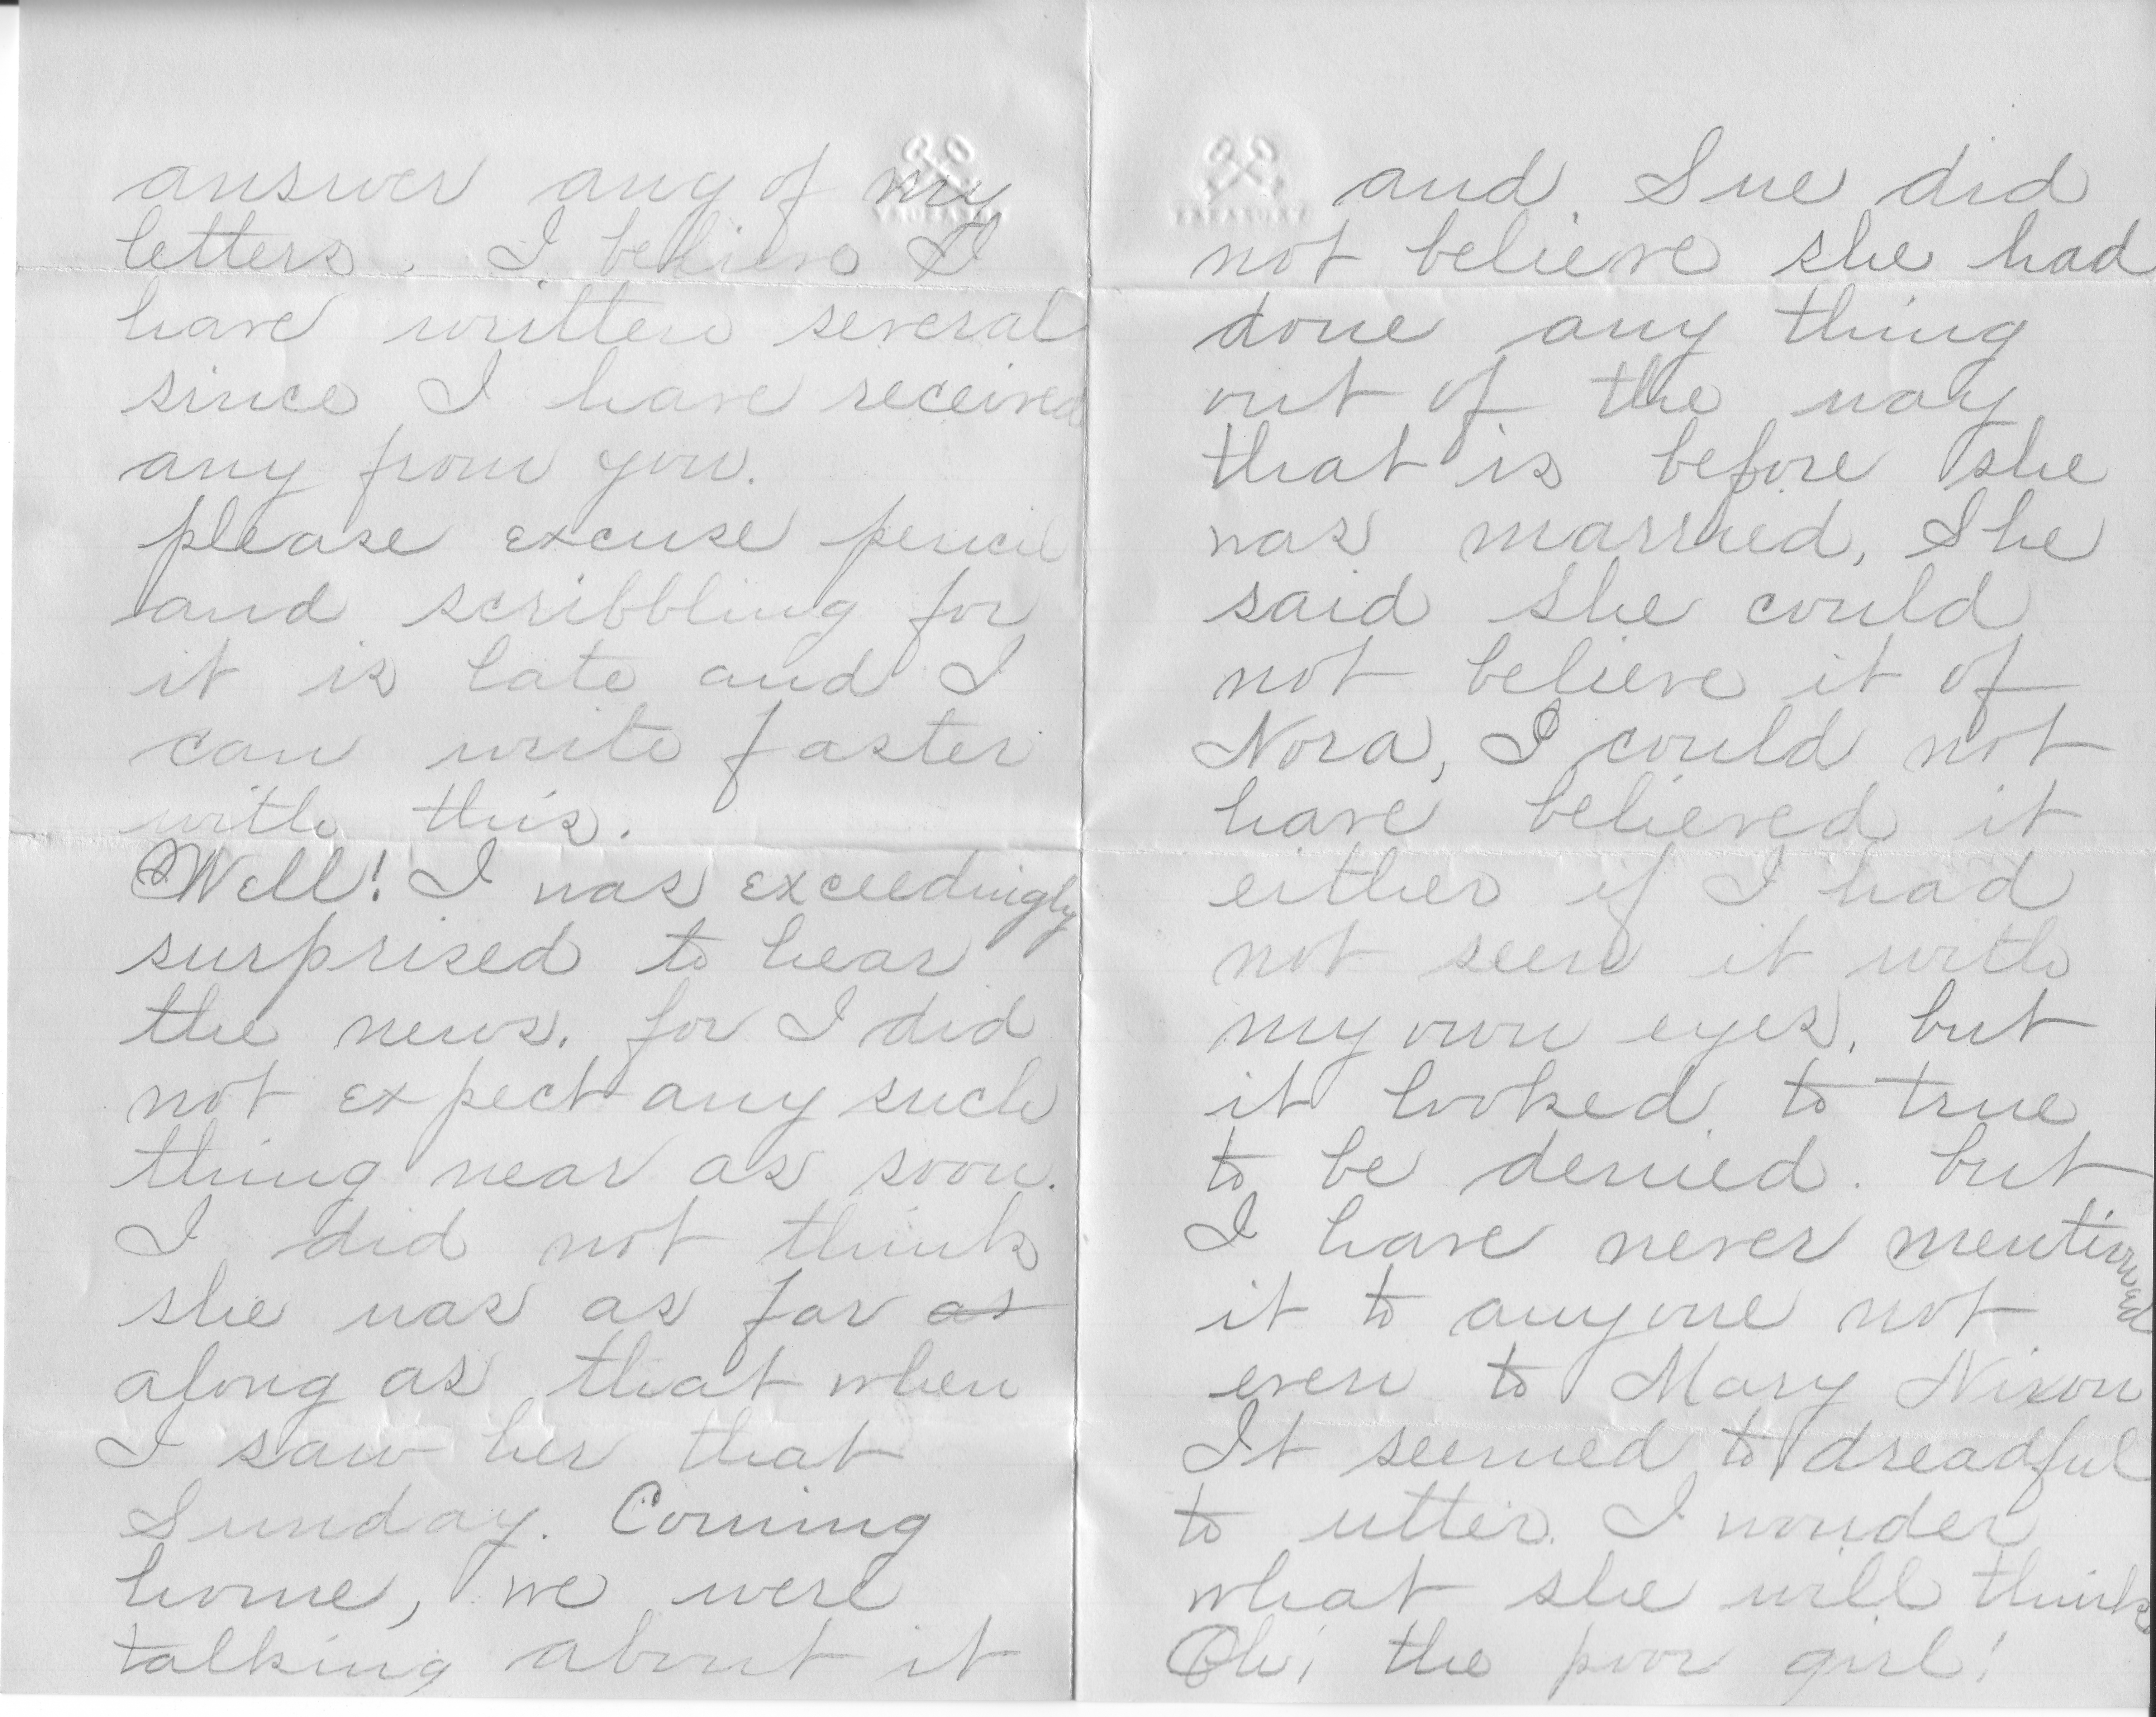 answer any of my
letters. I believe I
have written several
since I have received
any from you.
please excuse pencil
and scribbling for
it is late and I
can write faster
with this.
Well! I was exceedingly
surprised to hear
the news. for I did
not expect any such
thing near as soon.
I did not think
she was as far as
along as that when
I saw her that
Sunday. Coming
home, we were
talking about it
and Sue did
not believe she had
done any thing
out of the way
that is before she
was married, She
said she could
not believe it of
Nora, I could not
have believed it
either if I had
not seen it with
my own eyes. but
it looked to true
to be denied. but
I have never mentioned
it to anyone not
even to Mary Nixon
It seemed to dreadful
to utter. I wonder
what she will think
Oh! the poor girl!